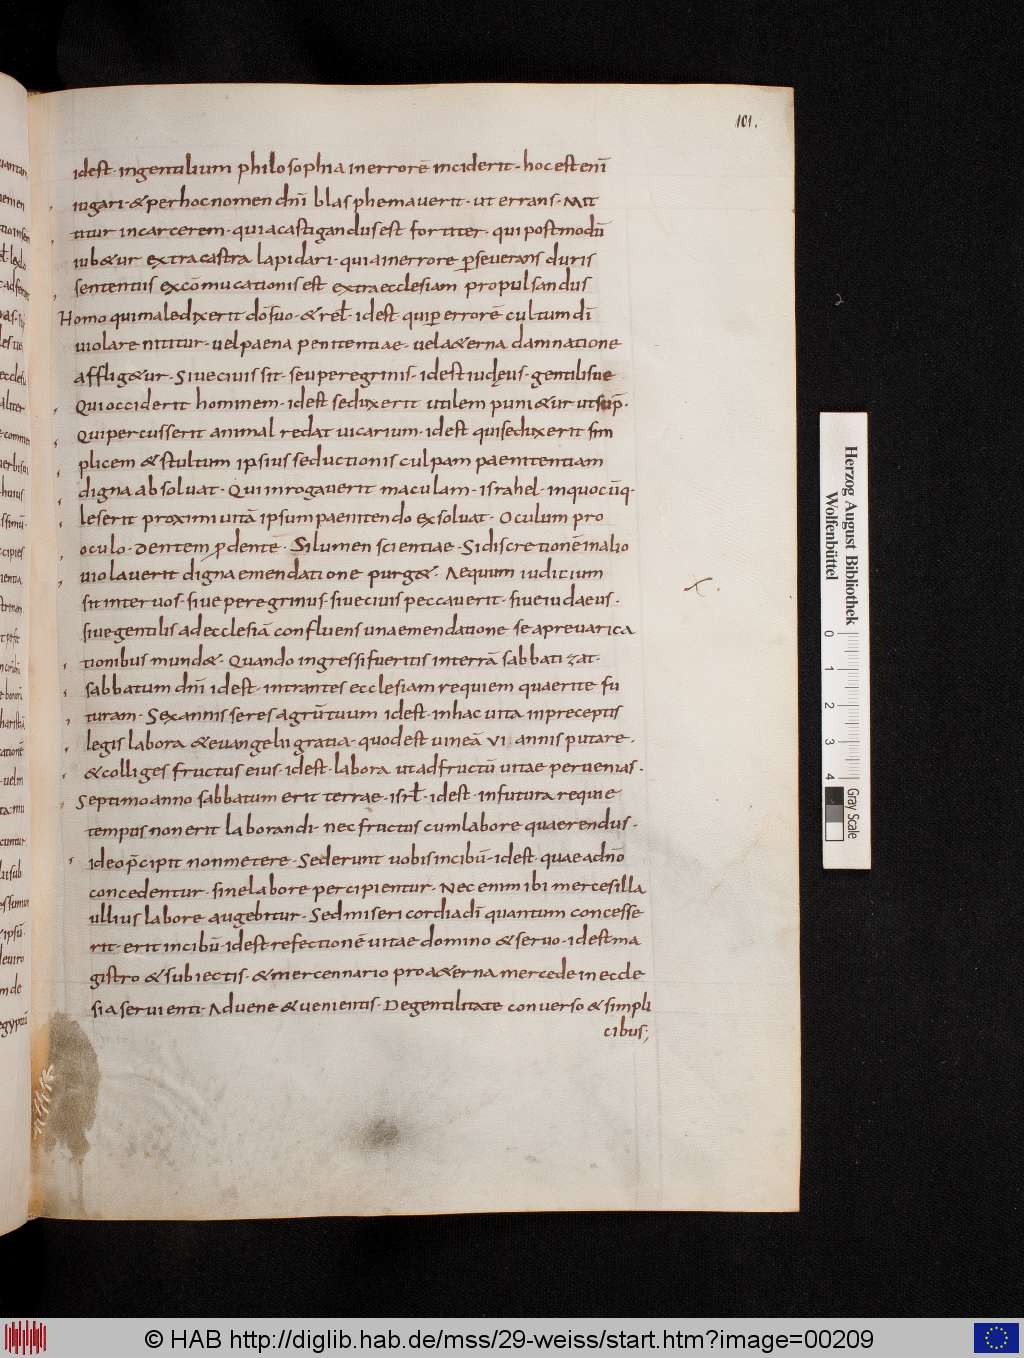 101.
idest· ingentilium philosophia inerrorē inciderit· hoc est enī
iugari· & perhocnomen dn̄i blasphemauerit· ut errans· Mit
titur incarcerem· quia castigandus est fortiter· qui postmodū
iub&ur extra castra lapidari· quia inerrore ꝑseuerans duris
sententiis excōmucationis est extra ecclesiam propulsandus
Homo qui maledixerit dō suo· & rel̄· idest quiꝑ errorē cultum dī
uiolare nititur· uel paena penitentiae· uel a&erna damnatione
afflig&ur· Siue ciuis sit· seu peregrinis· idest iudęus· gentilisue
Qui occiderit hominem· idest seduxerit utilem puni&ur ut sup̄·
Qui percusserit animal redat uicarium· idest qui seduxerit sim
plicem & stultum ipsius seductionis culpam paenitentiam
digna absoluat· Qui inrogauerit maculam· israhel· inquocūq·
leserit proximi uitā ipsum paenitendo exsoluat· Oculum pro
oculo· dentem ꝓ dentē· Si lumen scientiae· Si discretionē inalio
uiolauerit digna emendatione purg&· Aequum iuditium
sit inter uos· siue peregrinus· siue ciuis peccauerit· siue iudaeus·
siue gentilis ad ecclesiā confluens una emendatione se a preuarica
tionibus mund&· Quando ingressi fueritis interrā sabbatizat·
sabbatum dn̄i idest· intrantes ecclesiam requiem quaerite fu
turam· Sex annis seres agrū tuum idest· inhac uita inpreceptis
legis labora & euangelii gratia· quodest uineā VI annis putare·
& colliges fructus eius· idest· labora ut ad fructū uitae peruenias·
Septimo anno sabbatum erit terrae· isrl̄· idest· infutura requie
tempus non erit laborandi· nec fructus cum labore quaerendus·
ideo p̄cipit non metere· Sed erunt uobis incibū· idest· quae adn̄o
concedentur· sine labore percipientur· Nec enim ibi merces illa
ullius labore augebitur· Sed misericordia dī quantum concesse
rit· erit incibū· idest refectionē uitae domino & seruo· idest ma
gistro & subiectis· & mercennario pro a&erna mercede in eccle
sia seruienti· Aduene & uenientis· De gentilitate conuerso & simpli
cibus;
Herzog August Bibliothek
Wolfenbüttel
0 1 2 3 4
Gray Scale
© HAB http://diglib.hab.de/mss/29-weiss/start.htm?image=00209